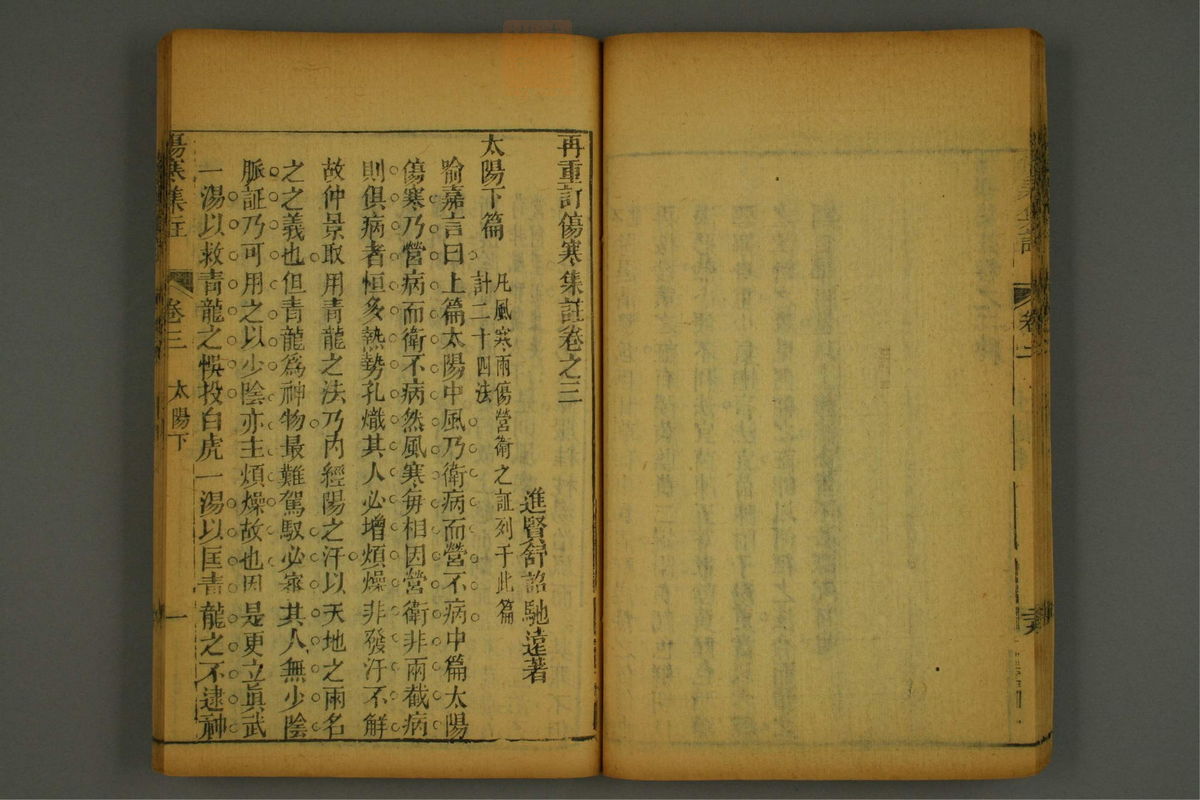 再重訂傷寒集註卷之三
進賢舒詔馳遠著
太陽下篇
凡風寒兩傷營衛之証列于此篇
計二十四法
喻嘉言曰上篇太陽中風乃衛病而營不病中篇太陽
傷寒乃營病而衛不病然風寒每相因營衛非兩截病
則俱病者恒多熱勢孔熾其人必增煩燥非發汗不解
故仲景取用青龍之法乃內經陽之汗以天地之雨名
之之義也但青龍爲神物最難駕馭必審其人無少陰
脈証乃可用之以少陰亦主煩燥故也因是更立眞武
一湯以救青龍之悞投白虎一湯以匡青龍之不逮神
傷寒集註
卷三
太陽下
一